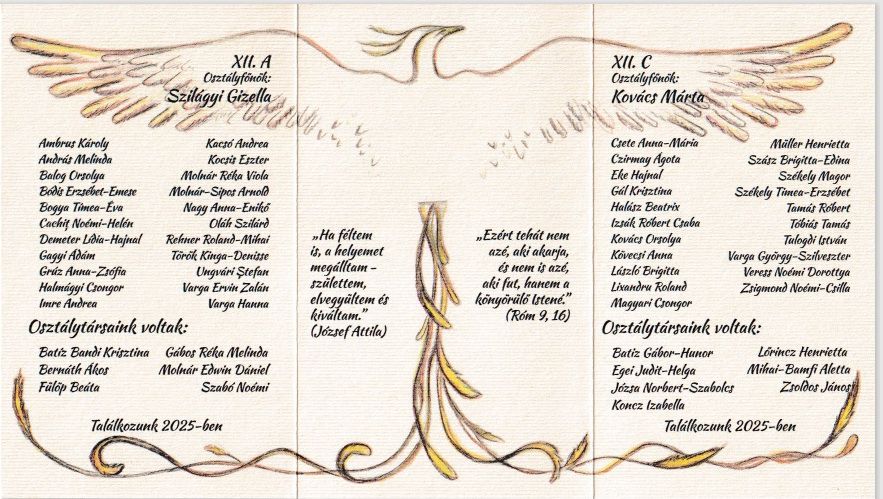 XII. A
Osztályfőnök:
Szilágyi Gizella
Ambrus Károly
András Melinda
Balog Orsolya
Bódis Erzsébet-Emese
Bogya Tímea-Éva
Cachiț Noémi-Helén
Demeter Lídia-Hajnal
Gagyi Ádám
Gráz Anna-Zsófia
Halmágyi Csongor
Imre Andrea
Kacsó Andrea
Kocsis Eszter
Molnár Réka Viola
Molnár-Sipos Arnold
Nagy Anna-Enikő
Oláh Szilárd
Rehner Roland-Mihai
Török Kinga-Denisse
Ungvári Ștefan
Varga Ervin Zalán
Varga Hanna
Osztálytársaink voltak:
Batiz Bandi Krisztina
Bernáth Ákos
Fülöp Beáta
Gábos Réka Melinda
Molnár Edwin Dániel
Szabó Noémi
Találkozunk 2025-ben
„Ha féltem
is, a helyemet
megálltam –
születtem,
elvegyültem és
kiváltam.”
(József Attila)
„Ezért tehát nem
azé, aki akarja,
és nem is azé,
aki fut, hanem a
könyörülő Istené.”
(Róm 9, 16)
XII. C
Osztályfőnök:
Kovács Márta
Csete Anna-Mária
Czirmay Ágota
Eke Hajnal
Gál Krisztina
Halász Beatrix
Izsák Róbert Csaba
Kovács Orsolya
Kövecsi Anna
László Brigitta
Lixandru Roland
Magyari Csongor
Müller Henrietta
Szász Brigitta-Edina
Székely Magor
Székely Tímea-Erzsébet
Tamás Róbert
Tóbiás Tamás
Tulogdi István
Varga György-Szilveszter
Veress Noémi Dorottya
Zsigmond Noémi-Csilla
Osztálytársaink voltak:
Batiz Gábor-Hunor
Egei Judit-Helga
Józsa Norbert-Szabolcs
Koncz Izabella
Lőrincz Henrietta
Mihai-Bamfi Aletta
Zsoldos János
Találkozunk 2025-ben